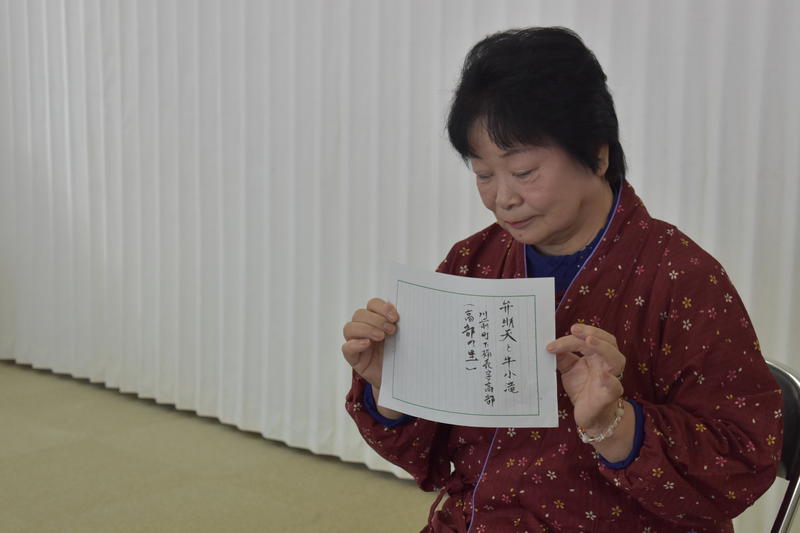 弁財天と牛小滝
川前町下桶売字高部
(高部の